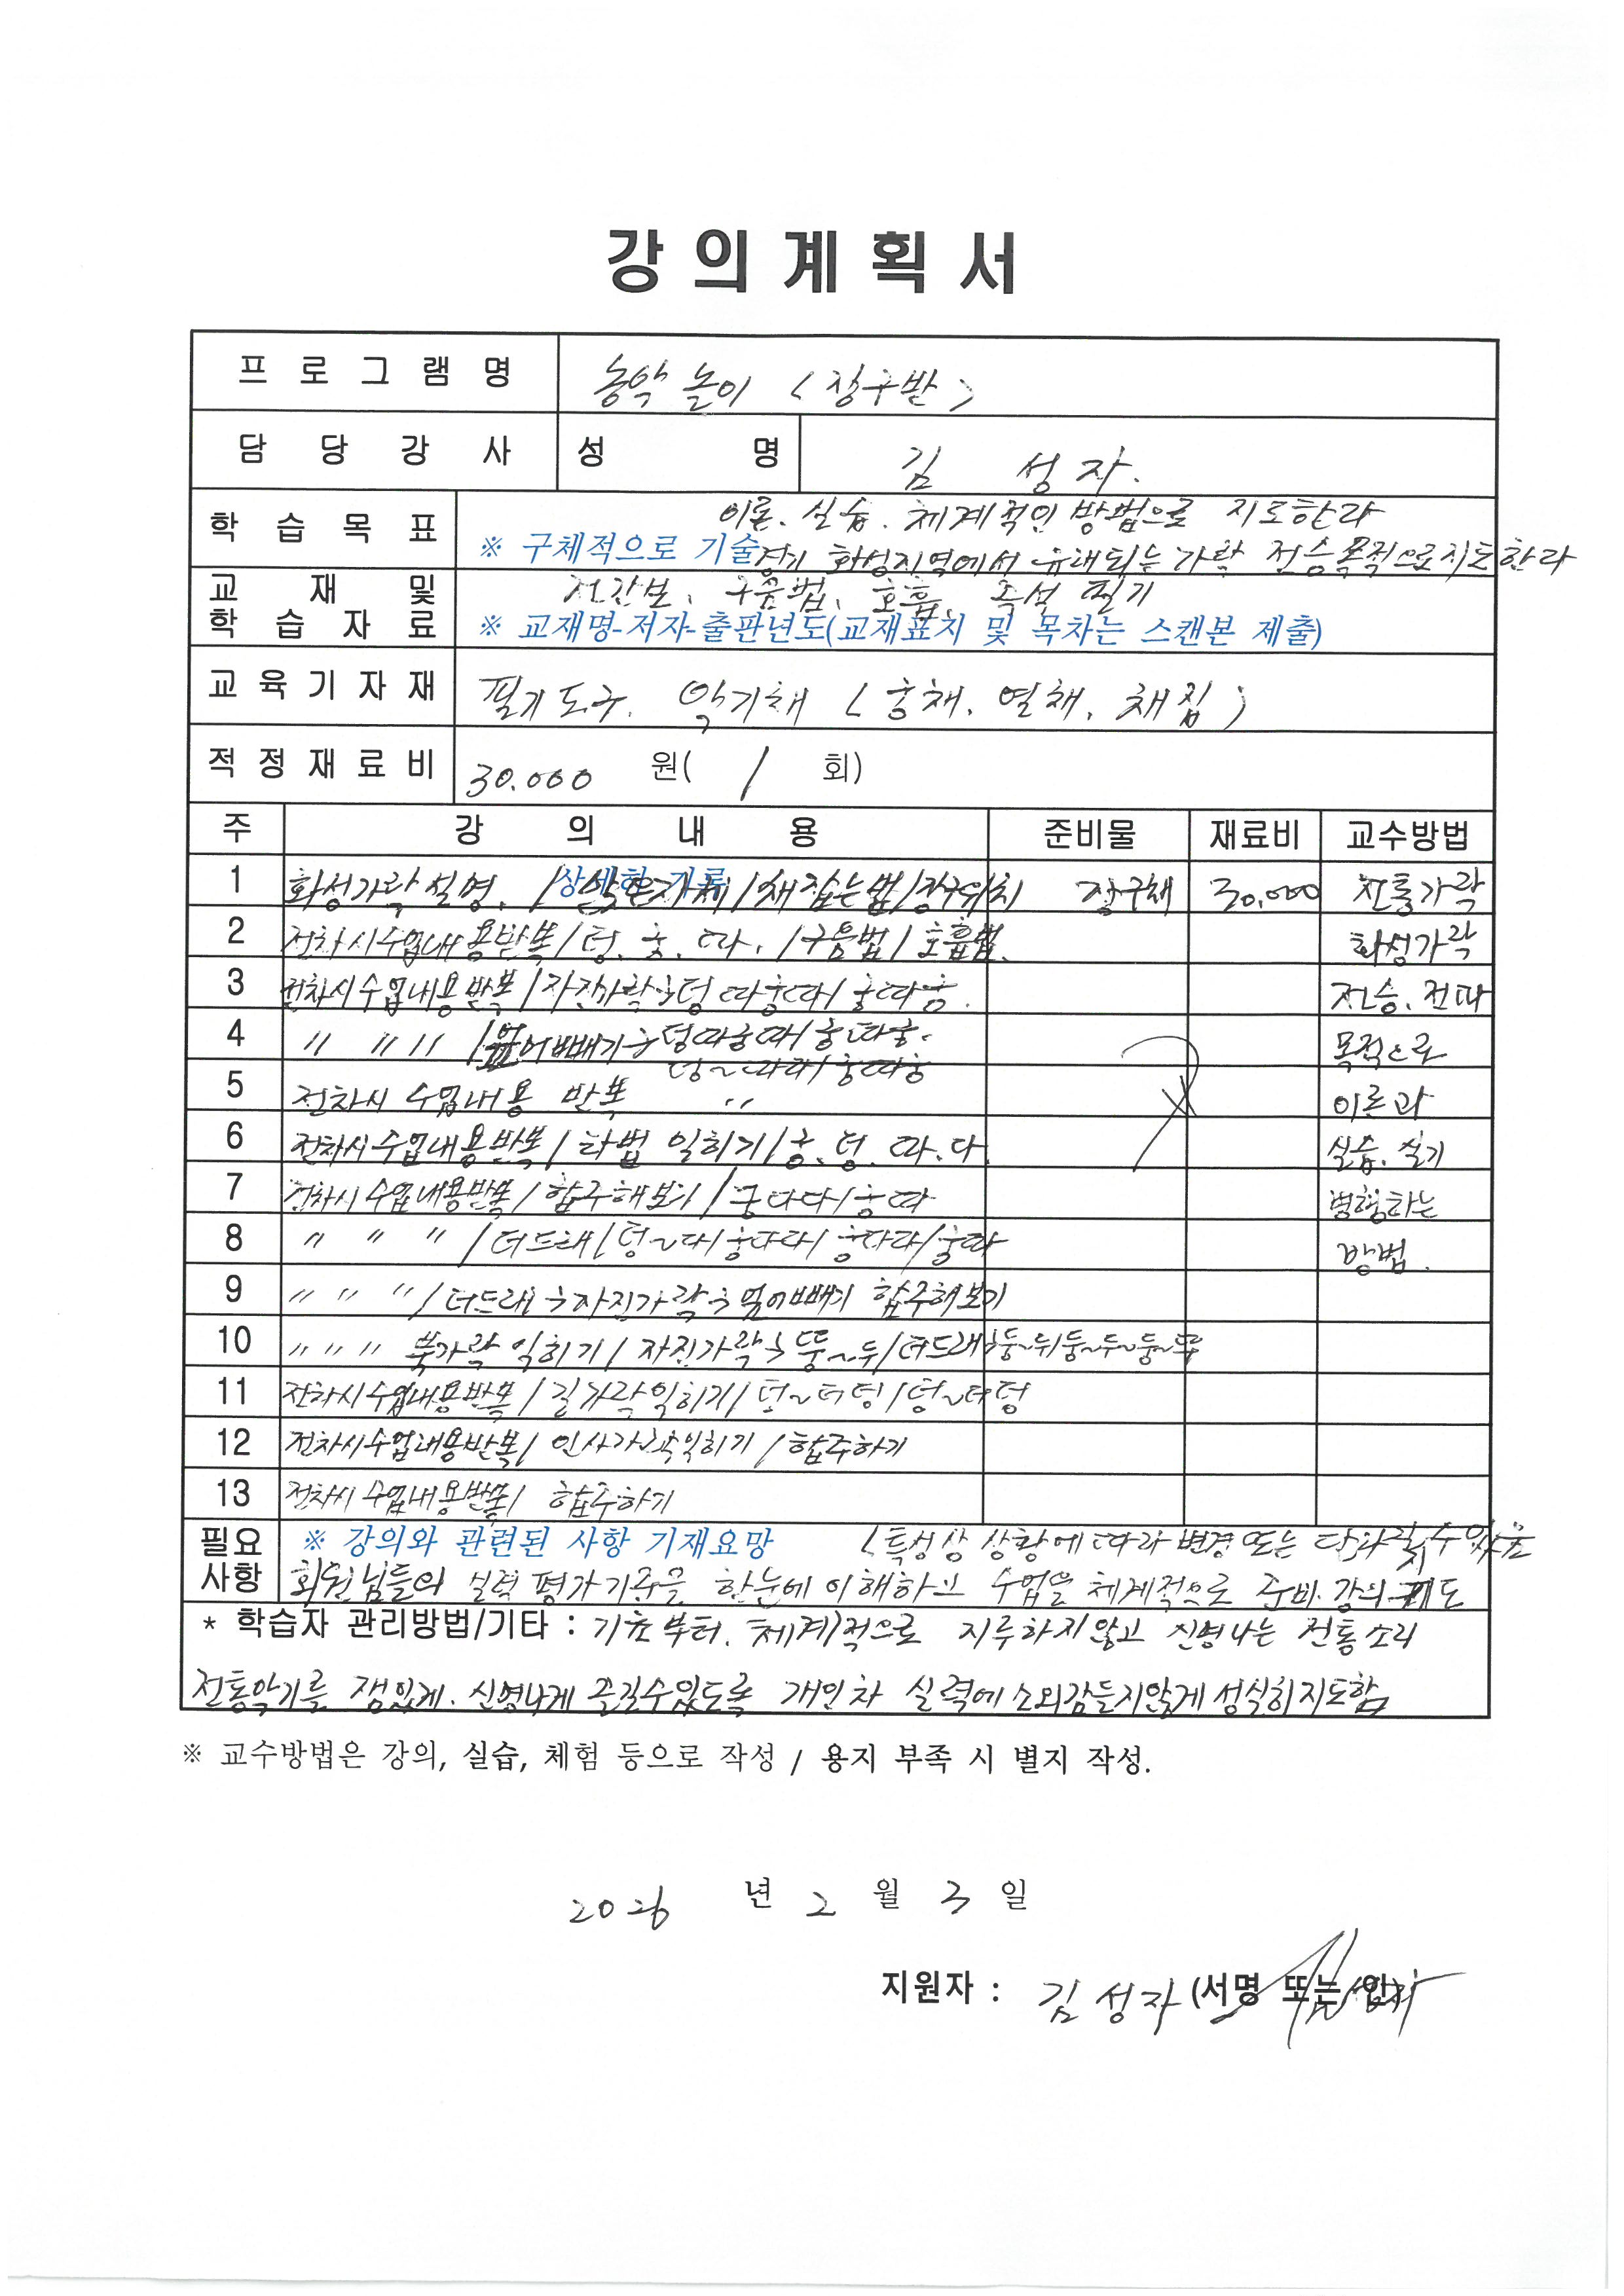 강 의 계 획 서
프 로 그 램 명 농악 놀이 (장구반)
담 당 강 사 성 명 김 성자.
학 습 목 표 이론. 실습. 체계적인 방법으로 지도한라
※ 구체적으로 기술 경기 화성지역에서 유래되는 가락 전승목적으로지도한라
교 재 및 정간보, 구음법, 호흡, 즉석 필기
학 습 자 료 ※ 교재명-저자-출판년도(교재표지 및 목차는 스캔본 제출)
교 육 기 자 재 필기도구. 악기채 (궁채. 열채. 채집)
적 정 재 료 비 30.000 원( 1 회)
주 강 의 내 용 준비물 재료비 교수방법
1 화성가락설명. / 상세히 기록 /채잡는법/장구위치 장구채 30,000 전통가락
2 전차시수업내용반복/덩. 궁. 따. /구음법/호흡법. 화성가락
3 전차시수업내용반복/자진가락→덩 따궁따/궁따궁. 전승. 전파
4 〃 〃 〃 / 덩따궁따/궁따궁. 목적으로
덩~따라/궁따궁
5 전차시 수업내용 반복 〃 이론과
6 전차시수업내용반복/타법 익히기/궁. 덩. 따. 다. 실습. 실기
7 전차시수업내용반복/합주해보기/궁다다/궁따 병행하는
8 〃 〃 〃 /더드래/덩~다/궁다라/궁다라/궁따 방법.
9 〃 〃 〃/더드래→자진가락→ 합주해보기
10 〃 〃 〃 북가락 익히기/자진가락→뚱~두/더드래→둥~두/둥~두~둥~두
11 전차시수업내용반복/길가락익히기/덩~더덩/덩~더덩
12 전차시수업내용반복/인사가락익히기/합주하기
13 전차시 수업내용반복/ 합주하기
필요 ※ 강의와 관련된 사항 기재요망 (특성상 상황에 따라 변경 또는 달라질 수 있음
사항 회원님들의 실력 평가기준을 한눈에 이해하고 수업을 체계적으로 준비. 강의 지도
* 학습자 관리방법/기타 : 기초부터. 체계적으로 지루하지않고 신명나는 전통소리
전통악기를 잼있게. 신명나게 즐길수있도록 개인차 실력에 소외감들지않게 성실히지도함
※ 교수방법은 강의, 실습, 체험 등으로 작성 / 용지 부족 시 별지 작성.
2026 년 2 월 3 일
지원자 : 김 성자 (서명 또는 인)